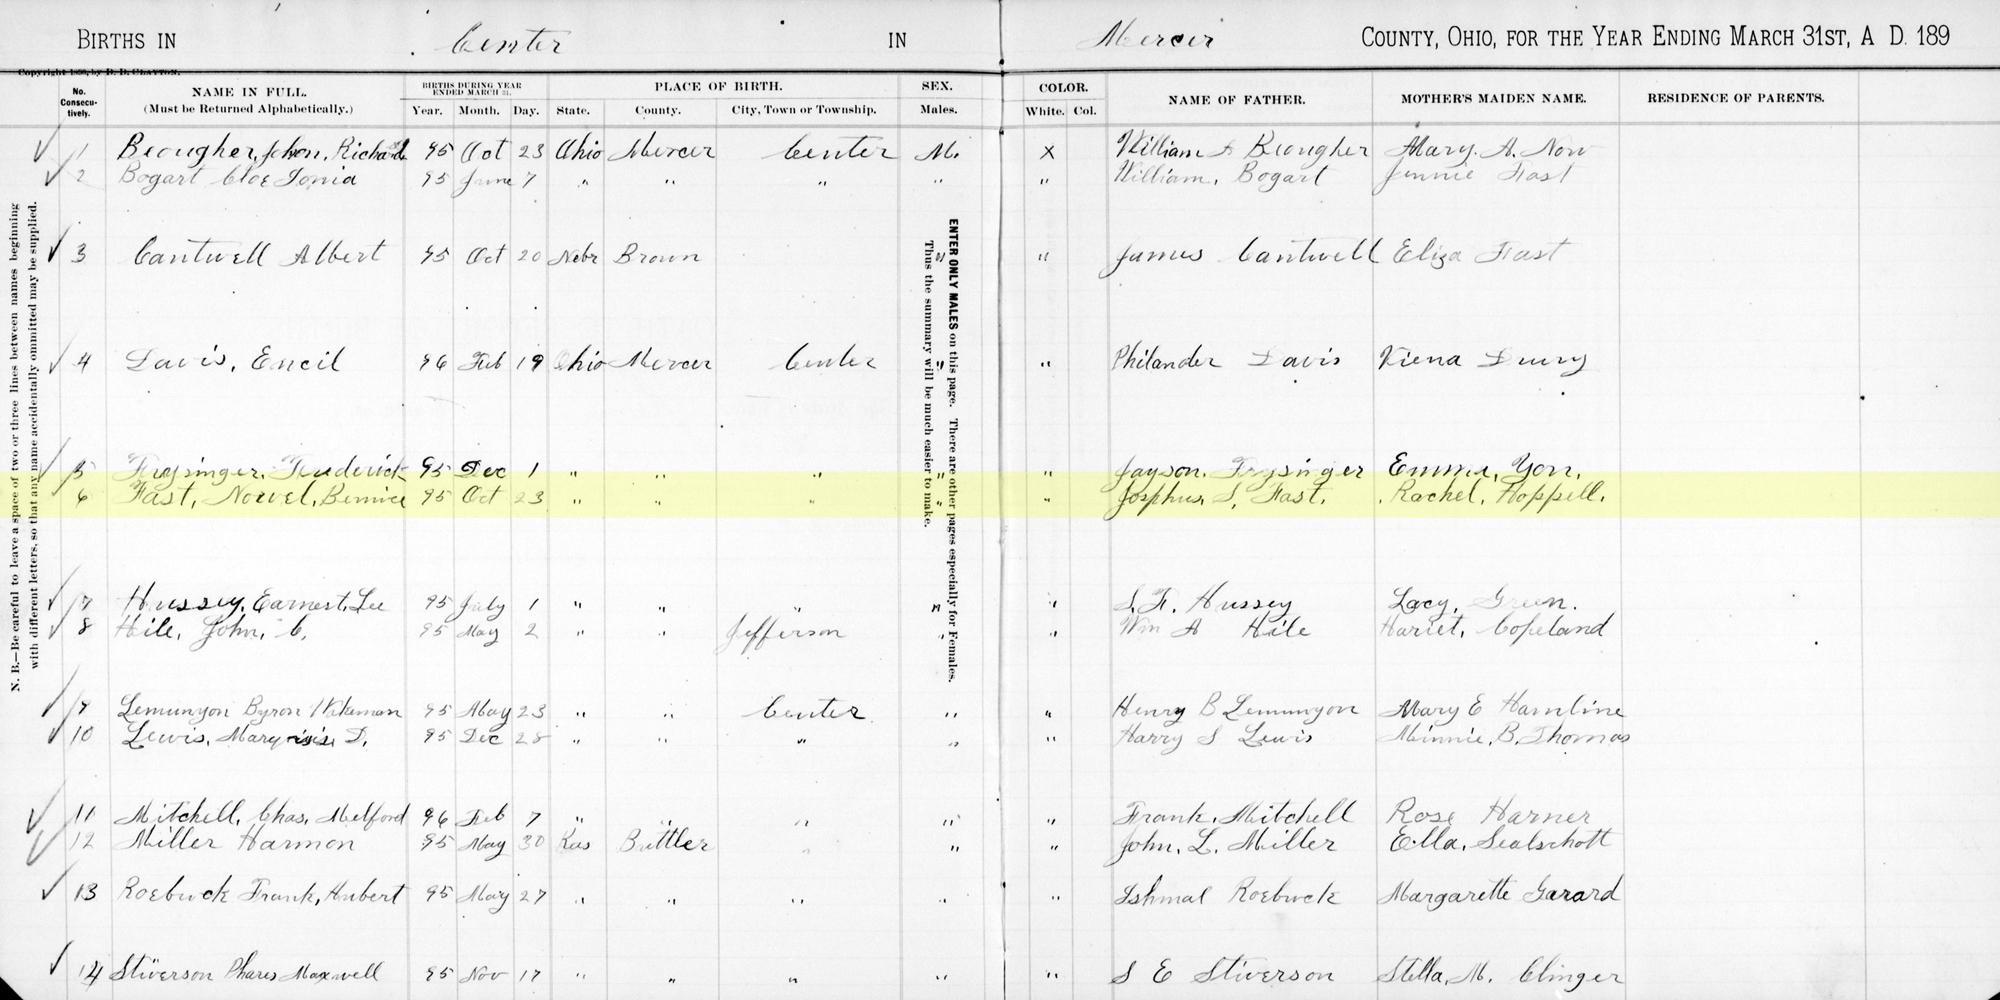 BIRTHS IN Center IN Mercer COUNTY, OHIO, FOR THE YEAR ENDING MARCH 31ST, A D. 189
Copyright 1890, by D. D. CLAYTON.
No. Consecutively. NAME IN FULL. (Must be Returned Alphabetically.) BIRTHS DURING YEAR ENDED MARCH 31. Year. Month. Day. PLACE OF BIRTH. State. County. City, Town or Township. SEX. Males. COLOR. White. Col. NAME OF FATHER. MOTHER'S MAIDEN NAME. RESIDENCE OF PARENTS.
N. B.—Be careful to leave a space of two or three lines between names beginning
with different letters, so that any name accidentally ommitted may be supplied.
ENTER ONLY MALES on this page. There are other pages especially for Females.
Thus the summary will be much easier to make.
1 Beougher, John, Richard 95 Oct 23 Ohio Mercer Center M. X William Beougher Mary. A. Now
2 Bogart Cloe Ionia 95 June 7 " " " " " William, Bogart Jennie Fast
3 Cantwell Albert 95 Oct 20 Nebr Brown " " James Cantwell Eliza Fast
4 Davis, Encil 96 Feb 19 Ohio Mercer Center " " Philander Davis Viena Drury
5 Frysinger, Frederick 95 Dec 1 " " " " " Jayson, Frysinger Emma, Yon,
6 Fast, Norvel, Bernice 95 Oct 23 " " " " " Josphus, S, Fast, Rachel, Hoppell.
7 Hussey, Earnest, Lee 95 July 1 " " " " " S. F. Hussey Lacy, Green.
8 Hile, John, C, 95 May 2 " " Jefferson " " Wm A Hile Hariet, Copeland
9 Lemunyon Byron 95 May 23 " " Center " " Henry B Lemunyon Mary E Hamline
10 Lewis, 95 Dec 28 " " " " " Harry S Lewis Minnie, B. Thomas
11 Mitchell, Chas, Melford 96 Feb 7 " " " " " Frank, Mitchell Rose Harner
12 Miller Harmon 95 May 30 Kas Buttler " " " John, L. Miller Ella, Sealschott
13 Roebuck Frank, Hubert 95 May 27 " " " " " Ishmal Roebuck Margarette Garard
14 Stiverson Phares Maxwell 95 Nov 17 " " " " " S E Stiverson Stella, M. Clinger